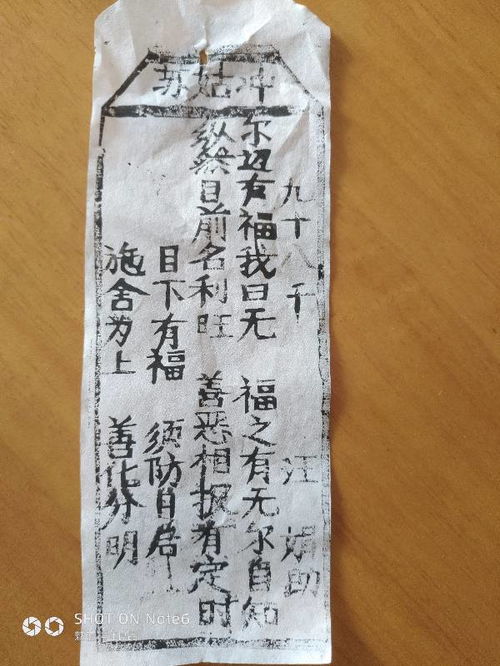 冲姑苏
九十八千 汪娟助
尔有福我曰无 福之有无尔自知
纵然目前名利旺 善恶相报有定时
目下有福 须防日后
施舍为上 善分明
SHOT ON Note6